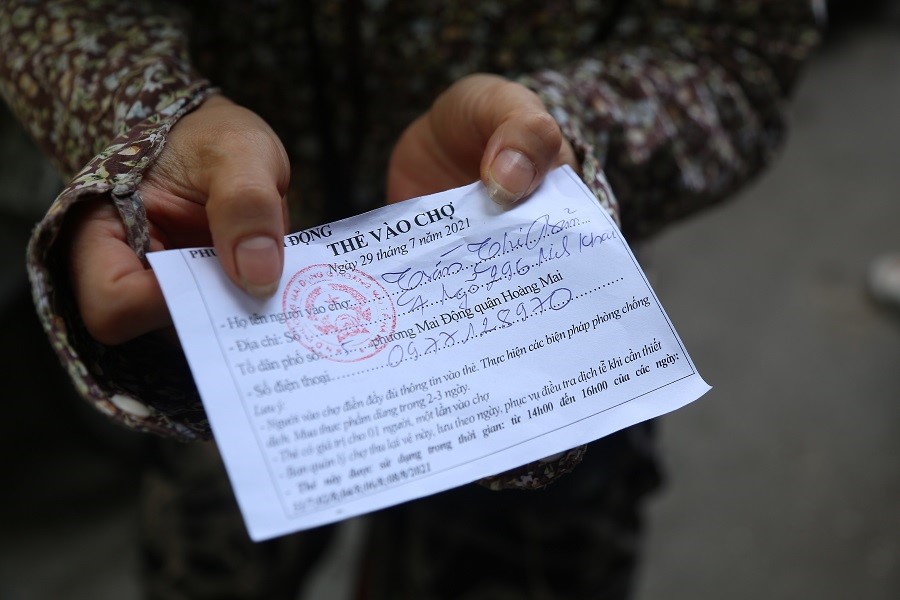 PHƯ ĐỘNG
THẺ VÀO CHỢ
Ngày 29 tháng 7 năm 2021
- Họ tên người vào chợ: Trần Thị
- Địa chỉ: Số 4 Ngõ 296 Minh Khai
Tổ dân phố số phường Mai Động quận Hoàng Mai
- Số điện thoại 0977128970
Lưu ý
- Người vào chợ điền đầy đủ thông tin vào thẻ. Thực hiện các biện pháp phòng chống
dịch. Mua thực phẩm dùng trong 2-3 ngày.
- Thẻ có giá trị cho 01 người, một lần vào chợ
- Ban quản lý chợ thu lại vé này, lưu theo ngày, phục vụ điều tra dịch tễ khi cần thiết
- Thẻ này được sử dụng trong thời gian: từ 14h00 đến 16h00 của các ngày:
31/7;02/8;04/8;06/8;08/8/2021